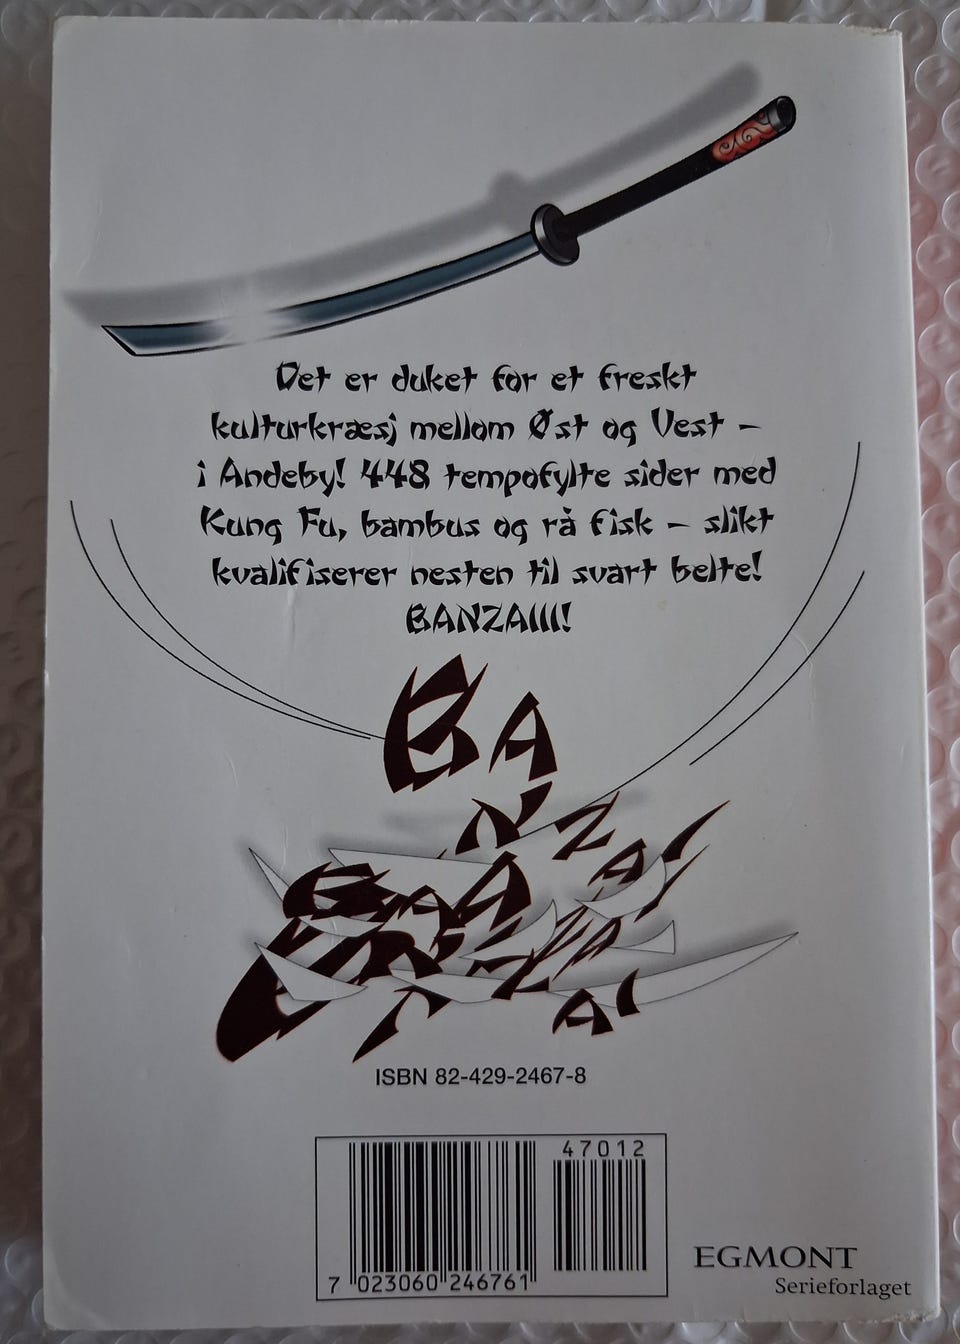 Det er duket for et freskt
kulturkræsj mellom Øst og Vest –
i Andeby! 448 tempofylte sider med
Kung Fu, bambus og rå fisk – slikt
kvalifiserer nesten til svart belte!
BANZAIII!
BANZAI
ISBN 82-429-2467-8
47012
7 023060 246761
EGMONT
Serieforlaget